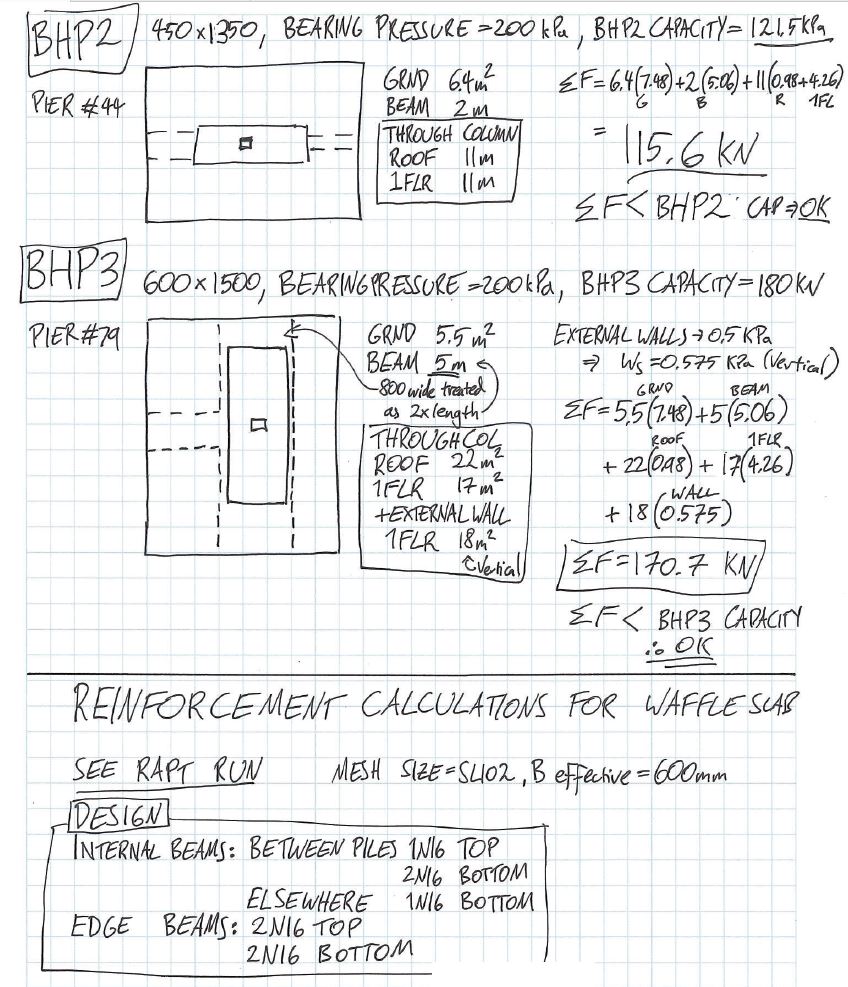 BHP2 450×1350, BEARING PRESSURE=200kPa, BHP2 CAPACITY=121.5kPa
PIER #44
GRND 6.4m²
BEAM 2m
THROUGH COLUMN
ROOF 11m
1FLR 11m
ΣF=6.4(7.48)+2(5.06)+11(0.98+4.26)
G B R 1FL
= 115.6 KN
ΣF< BHP2 CAP⇒OK
BHP3 600×1500, BEARING PRESSURE=200kPa, BHP3 CAPACITY=180KN
PIER #79
GRND 5.5m²
BEAM 5m
800 wide treated
as 2x length
THROUGH COL
ROOF 22m²
1FLR 17m²
+EXTERNAL WALL
1FLR 18m²
↑Vertical
EXTERNAL WALLS→0.5 KPa
⇒ Ws=0.575 KPa (Vertical)
GRND BEAM
ΣF=5.5(7.48)+5(5.06)
ROOF 1FLR
+22(0.98) + 17(4.26)
WALL
+18(0.575)
ΣF=170.7 KN
ΣF< BHP3 CAPACITY
∴ OK
REINFORCEMENT CALCULATIONS FOR WAFFLE SLAB
SEE RAPT RUN MESH SIZE=SL102, B effective=600mm
DESIGN
INTERNAL BEAMS: BETWEEN PILES 1N16 TOP
2N16 BOTTOM
ELSEWHERE 1N16 BOTTOM
EDGE BEAMS: 2N16 TOP
2N16 BOTTOM